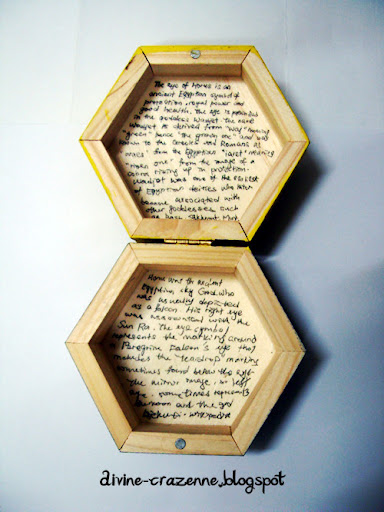 The eye of Horus is an
ancient Egyptian symbol of
protection, royal power and
good health. The eye is personified
in the goddess Wadjet. The name
Wadjet is derived from "wadj" meaning
"green" hence "the green one" and was
known to the Greeks and Romans as
"uraeus" from the Egyptian "iaret" meaning
"risen one" from the image of a
cobra rising up in protection.
Wadjet was one of the earliest
of Egyptian deities who later
became associated with
other goddesses such
as Bast, Sekhmet, Mut
Horus was the ancient
Egyptian sky God who
was usually depicted
as a falcon. His right eye
was associated with the
Sun Ra. The eye symbol
represents the marking around
a Peregrine Falcon's eye that
includes the "teardrop" marking
sometimes found below the eye.
The mirror image, or left
eye, sometimes represents
the moon and the god
Djehuti. wikipedia
divine-crazenne.blogspot